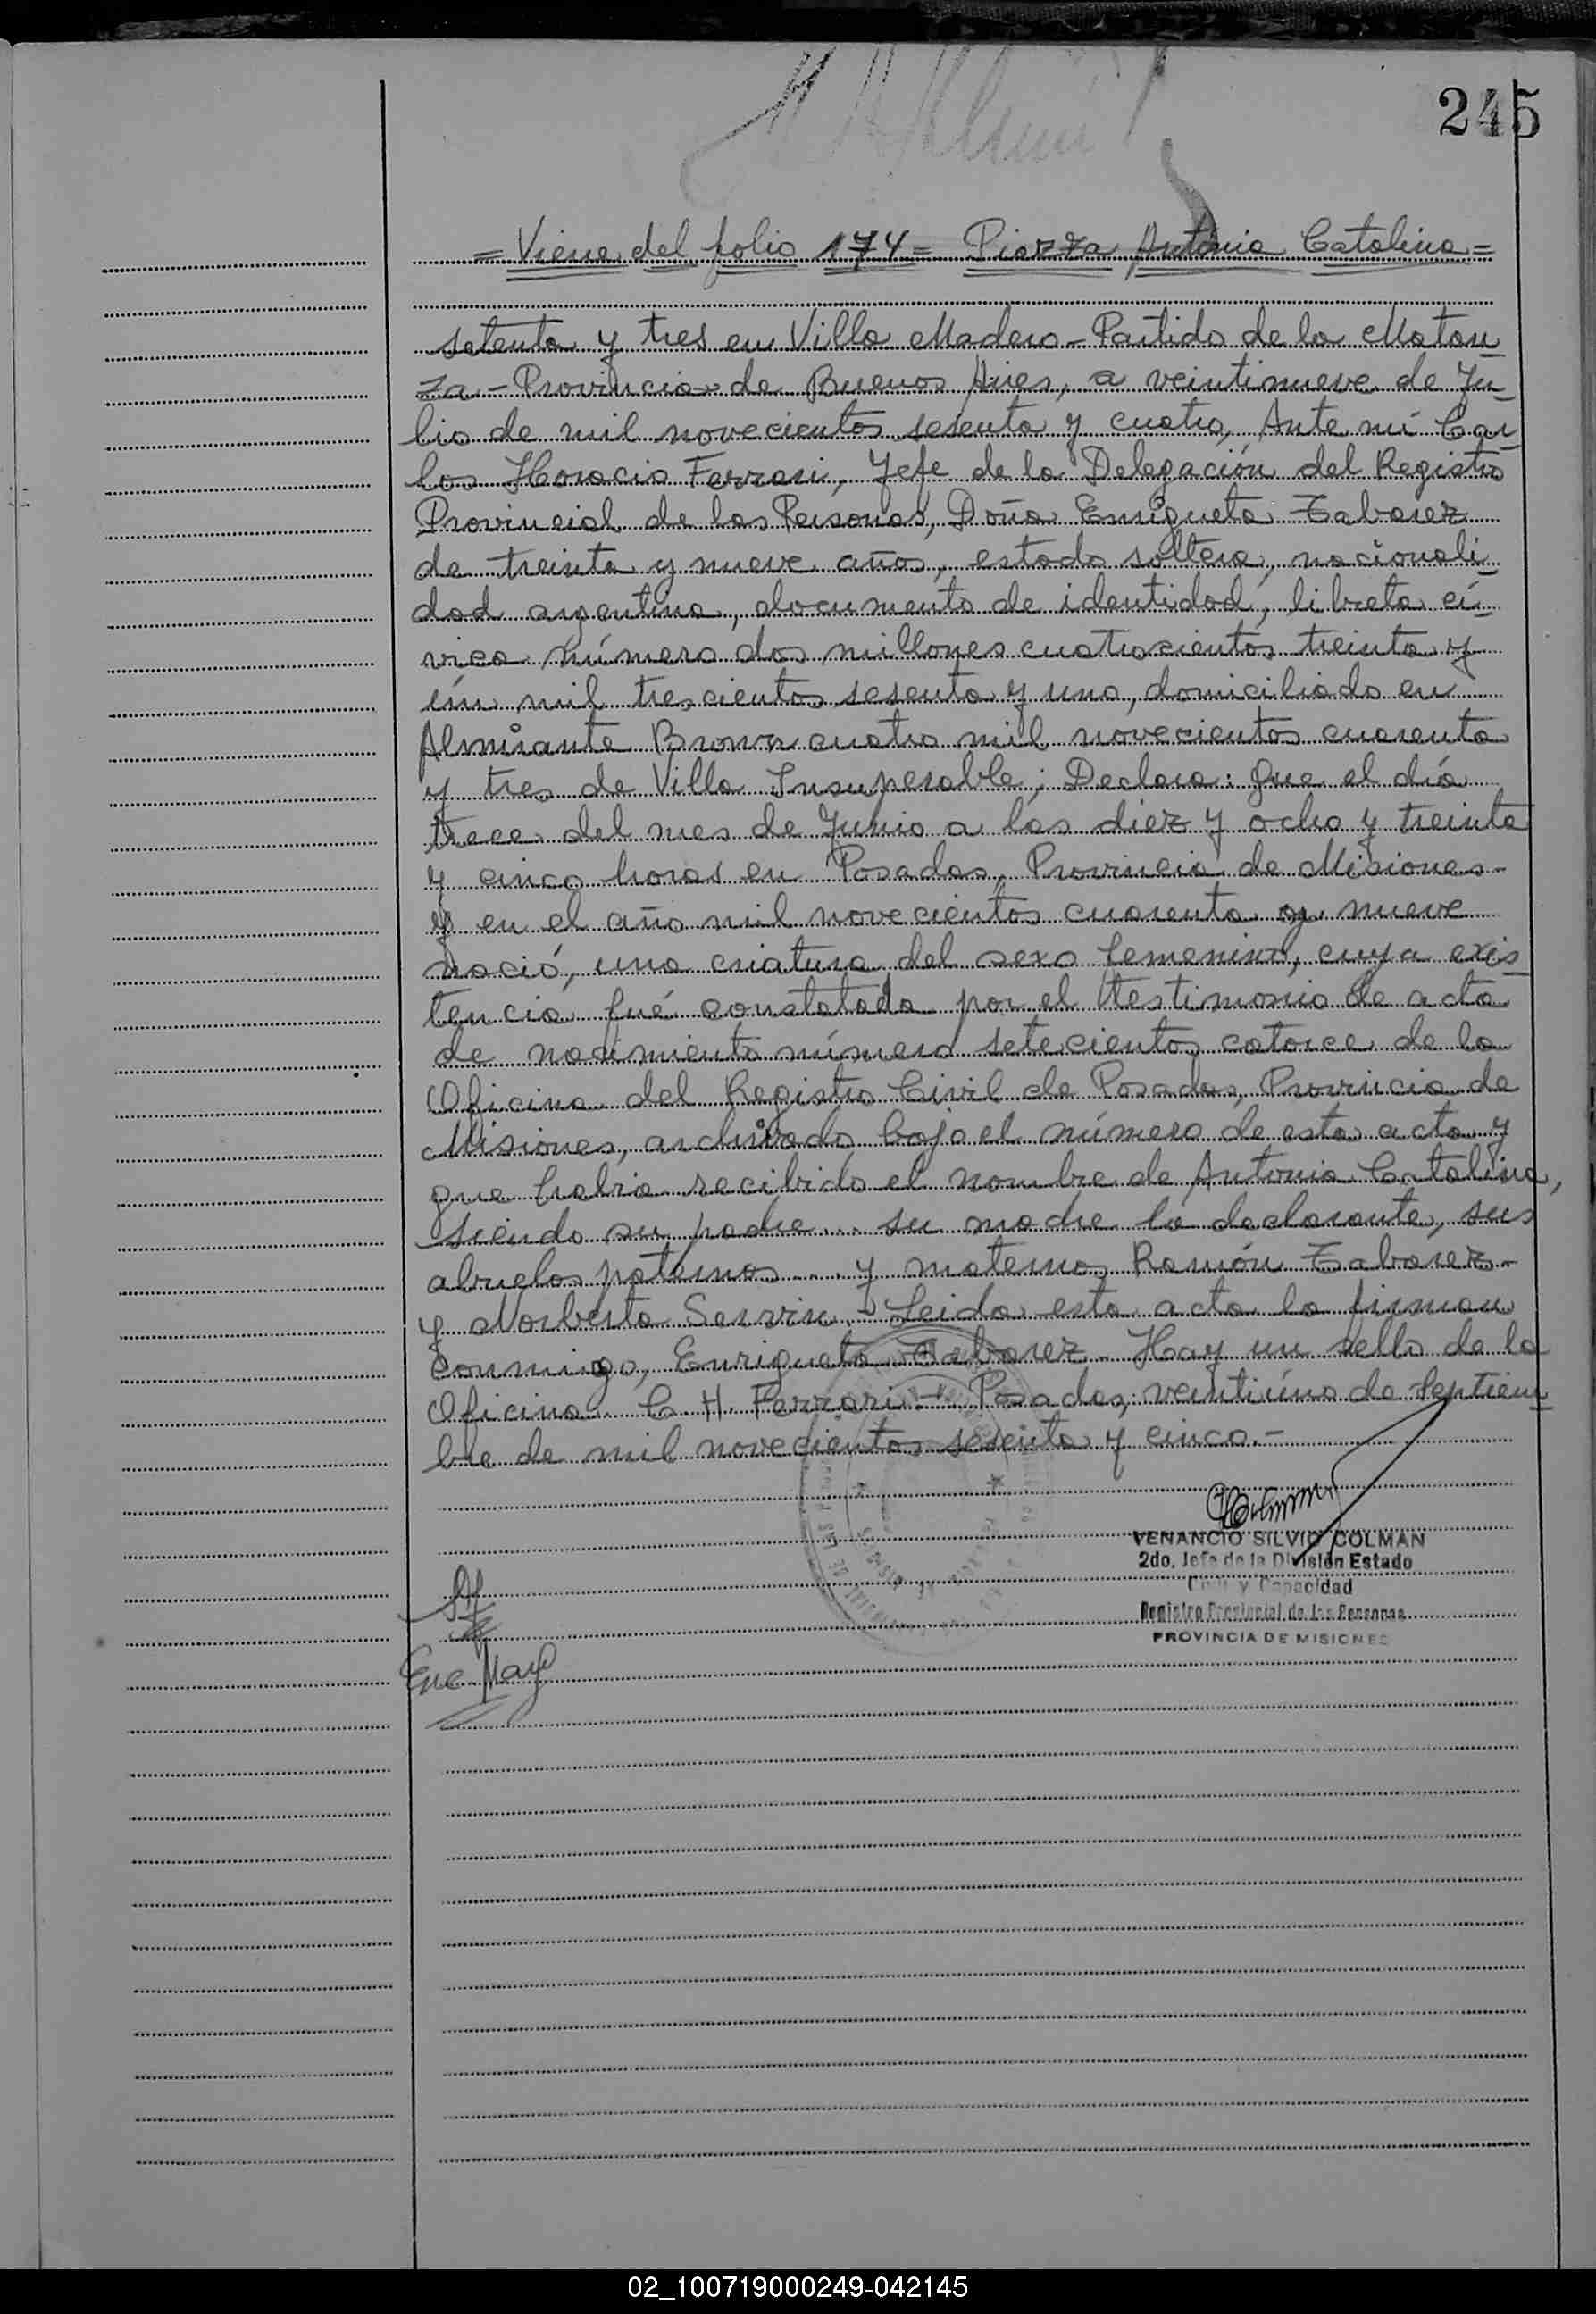 245
= Viene del folio 174 = Piazza Antonia Catalina =
setenta y tres en Villa Madero - Partido de la Matan
za - Provincia de Buenos Aires, a veintinueve de Ju
lio de mil novecientos sesenta y cuatro, Ante mí Car
los Horacio Ferrari, Jefe de la Delegación del Registro
Provincial de las Personas, Doña Enriqueta Tabarez
de treinta y nueve años, estado soltera, nacionali
dad argentina, documento de identidad, libreta cí
vica número dos millones cuatrocientos treinta y
ún mil trescientos sesenta y uno, domiciliada en
Almirante Brown cuatro mil novecientos cuarenta
y tres de Villa Insuperable; Declara: Que el día
trece del mes de Junio a las diez y ocho y treinta
y cinco horas en Posadas, Provincia de Misiones-
y en el año mil novecientos cuarenta y nueve
nació, una criatura del sexo femenino, cuya exis
tencia fué constatada por el testimonio de acta
de nacimiento número setecientos catorce de la
Oficina del Registro Civil de Posadas, Provincia de
Misiones, archivado bajo el número de esta acta y
que habia recibido el nombre de Antonia Catalina,
siendo su padre... su madre la declarante, sus
abuelos paternos.... y maternos Ramón Tabarez-
y Norberta Servin.- Leida esta acta la firman
conmigo, Enriqueta Tabarez- Hay un sello de la
Oficina. C. H. Ferrari.- Posadas, veintiúno de Septiem
bre de mil novecientos sesenta y cinco.-
VENANCIO SILVIO COLMAN
2do. Jefe de la División Estado
Civil y Capacidad
Registro Provincial de las Personas
PROVINCIA DE MISIONES
02_100719000249-042145